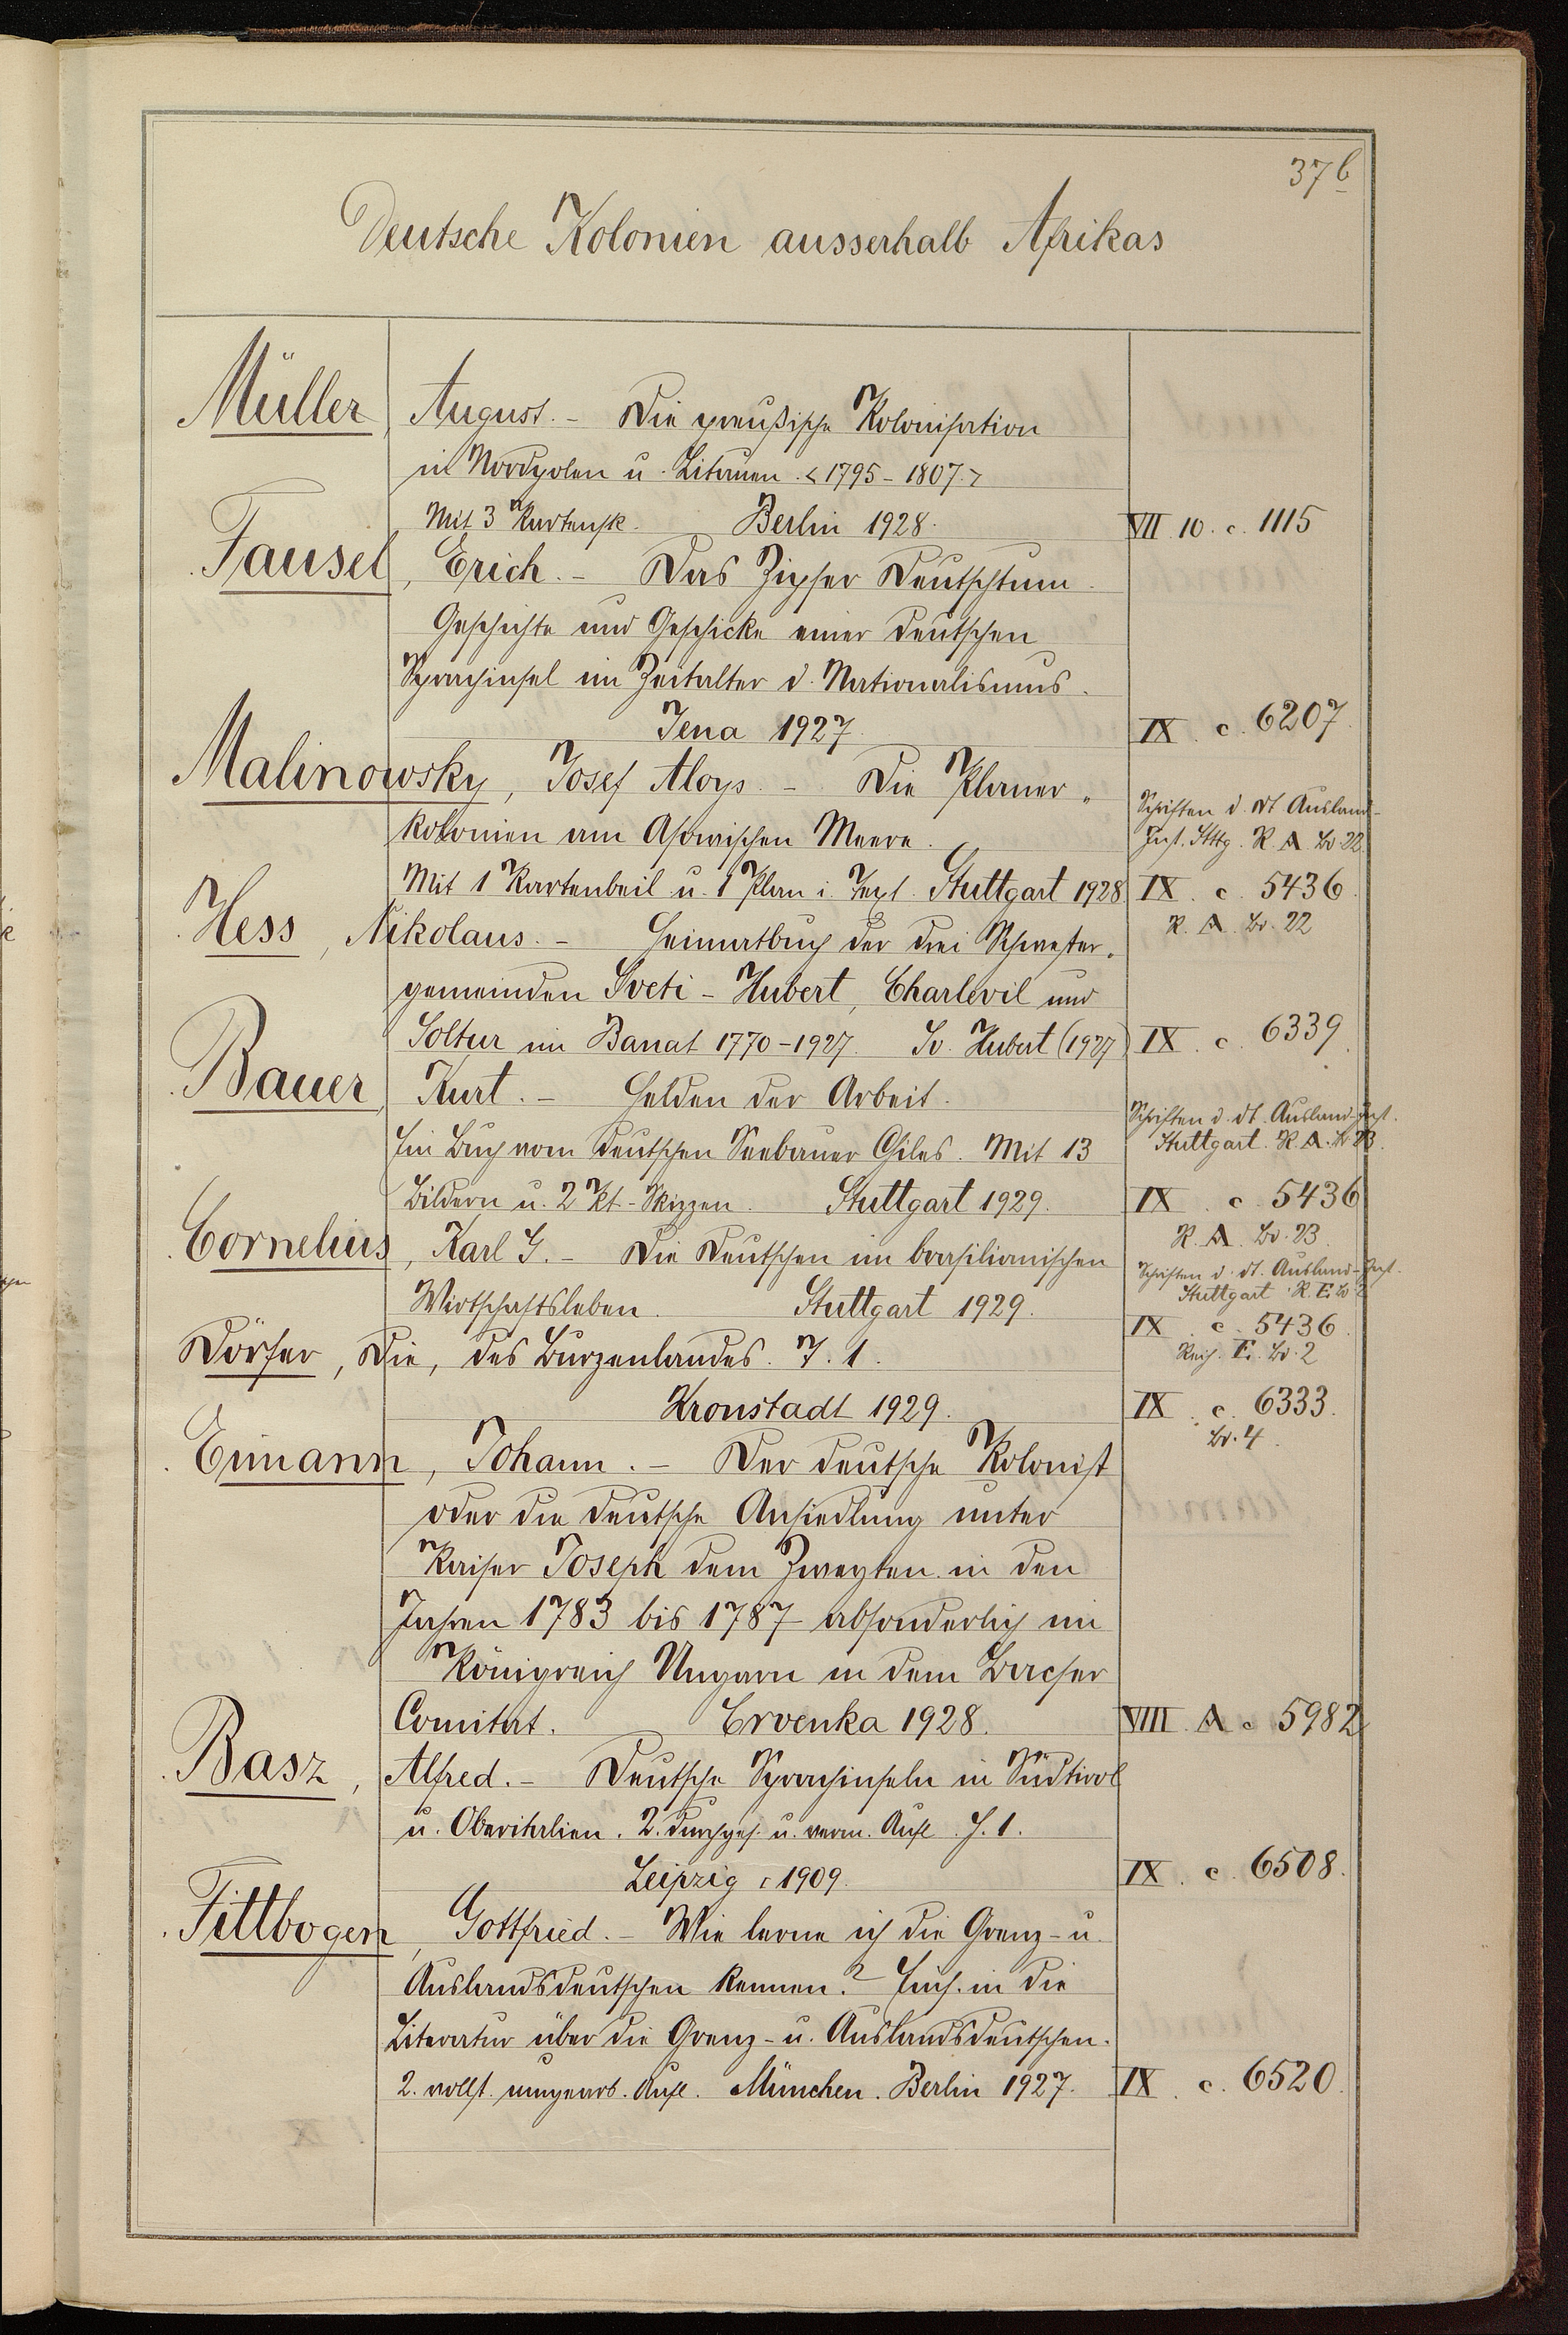 37b
Deutsche Kolonien ausserhalb Afrikas
Müller, August. - Die preußische Kolonisation
in Nordpolen u. Litauen. <1795-1807.>
Mit 3 Kartensk. Berlin 1928. VII. 10. c. 1115
Fausel, Erich. - Das Zipser Deutschtum.
Geschichte und Geschicke einer deutschen
Sprachinsel im Zeitalter d. Nationalismus.
Jena 1927. IX. c. 6207.
Malinowsky, Josef Aloys. - Die Planer-
kolonien am Asowischen Meere.
Schriften d. dt. Ausland-
Inst. Sttg. R. A. Bd. 22.
Mit 1 Kartenbeil. u. 1 Plan i. Text. Stuttgart 1928 IX. c. 5436.
R. A. Bd. 22
Hess, Nikolaus. - Heimatbuch der drei Schwester-
gemeinden Sveti-Hubert, Charlevil und
Soltur im Banat 1770-1927. Sv. Hubert (1927) IX. c. 6339.
Bauer, Kurt. - Helden der Arbeit.
Schriften d. dt. Ausland-Inst.
Stuttgart. R. A. Bd. 23.
Ein Buch vom deutschen Seebauer Chiles. Mit 13
Bildern u. 2 Kt.-Skizzen. Stuttgart 1929. IX. c. 5436
R. A. Bd. 23.
Cornelius, Karl G. - Die Deutschen im brasilianischen
Schriften d. dt. Ausland-Inst.
Stuttgart R. E. Bd. 2
Wirtschaftsleben. Stuttgart 1929. IX. c. 5436.
Reih. E. Bd. 2
Dörfer, Die, des Burzenlandes. T. 1.
Kronstadt 1929. IX. c. 6333.
Bd. 4.
Eimann, Johann. - Der deutsche Kolonist
oder die deutsche Ansiedlung unter
Kaiser Joseph dem Zweyten in den
Jahren 1783 bis 1787 absonderlich im
Königreich Ungarn in dem Bacser
Comitat. Crvenka 1928. VIII. A c 5982
Basz, Alfred. - Deutsche Sprachinseln in Südtirol
u. Oberitalien. 2. durchges. u. verm. Aufl. H. 1.
Leipzig 1909. IX. c. 6508.
Fittbogen, Gottfried. - Wie lerne ich die Grenz- u.
Auslandsdeutschen kennen? Einf. in die
Literatur über die Grenz- u. Auslandsdeutschen.
2. vollst. umgearb. Aufl. München. Berlin 1927. IX. c. 6520.